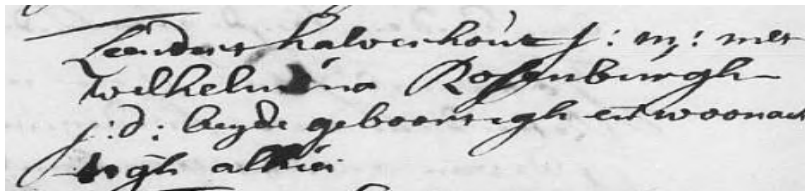 Leendert halverhout j: m: met
wilhelmina Rosenburgh
j: d: beyde geboortigh en woonach
tigh alhier